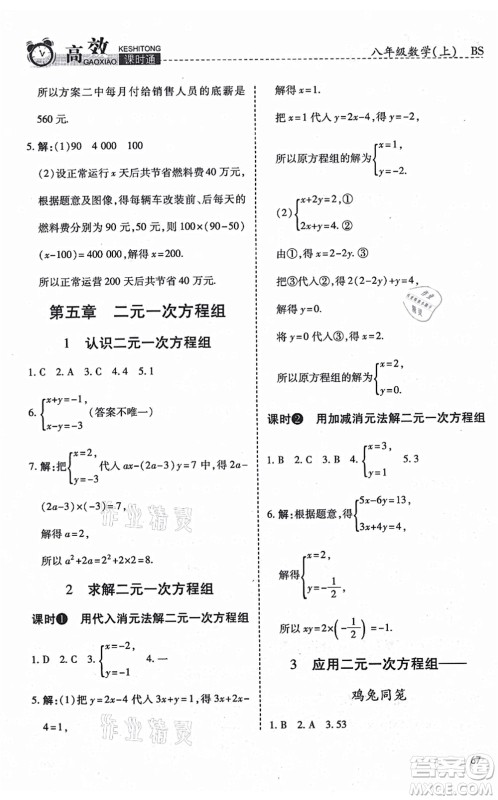 高效
GAOXIAO
KESHITONG
课时通
八年级数学(上) BS
所以方案二中每月付给销售人员的底薪是
560 元.
5. 解:(1)90 4 000 100
(2)设正常运行 x 天后共节省燃料费 40 万元,
根据题意及图象,得每辆车改装前、后每天的
燃料费分别为 90 元,50 元,则 100×(90-50)
(x-100)=400 000,解得 x=200.
所以正常运营 200 天后共节省 40 万元.
第五章 二元一次方程组
1 认识二元一次方程组
1. C 2. A 3. C 4. 4 5. 1
6. {x+y=-1, x-y=-3 (答案不唯一)
7. 解:把{x=2, y=-3 代入 ax-(2a-3)y=7,得 2a-
(2a-3)×(-3)=7,
解得 a=2,
所以 a²+2a=2²+2×2=8.
2 求解二元一次方程组
课时❶ 用代入消元法解二元一次方程组
1. D 2. C 3. A 4. {x=-2, y=-3
5. 解:(1)把 y=2x-4 代入 3x+y=1,得 3x+2x-
4=1,
解得 x=1.
把 x=1 代入 y=2x-4,得 y=-2,
所以原方程组的解为{x=1, y=-2.
(2){x+2y=2,① 2x+y=4.②
由①,得 x=2-2y,③
把③代入②,得 2(2-2y)+y=4,
解得 y=0.
把 y=0 代入③,得 x=2,
所以原方程组的解为{x=2, y=0.
课时❷ 用加减消元法解二元一次方程组
1. B 2. B 3. B 4. {x=3, y=1 5. 3
6. 解:根据题意,得{5x-6y=13, 3x-6y=9,
解得{x=2, y=-1/2,
所以 xy=2×(-1/2)=-1.
3 应用二元一次方程组——
鸡兔同笼
1. B 2. A 3. 53
67
作业精灵
作业精灵